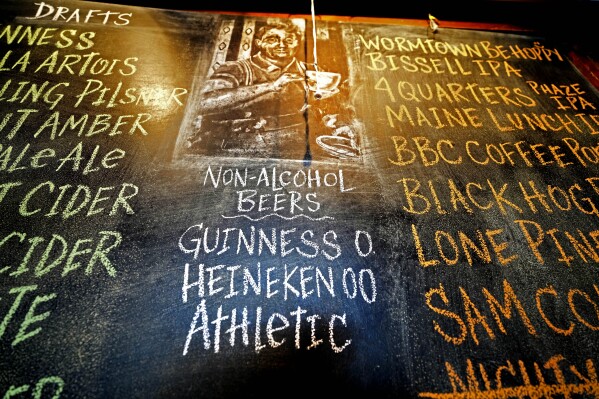 DRAFTS
NNESS
LA ARTOIS
LING PILSNER
T AMBER
PALE ALE
T CIDER
CIDER
TE
ER
NON-ALCOHOL
BEERS
GUINNESS O
HEINEKEN OO
AthletiC
WORMTOWN BE HOPPY
BISSELL IPA
4 QUARTERS PHAZE IPA
MAINE LUNCH IP
BBC COFFEE PO
BLACK HOG
LONE PINE
SAM CO
MIGHTY